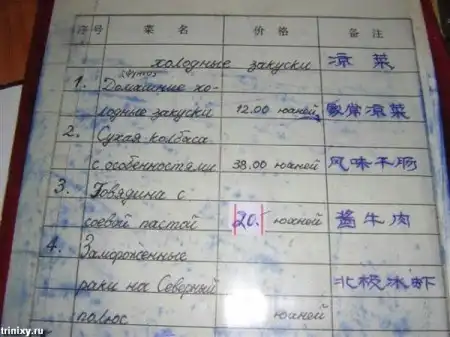 序号 菜名 价格 备注
холодные закуски 凉菜
1. Домашние хо-
лодные закуски 12.00 юаней 家常凉菜
2. Сухая колбаса
с особенностями 38.00 юаней 风味干肠
3. Говядина с
соевой пастой 20.- юаней 酱牛肉
4. Замороженные
раки на Северный
полюс юаней 北极冰虾
trinixy.ru
trinixy.ru